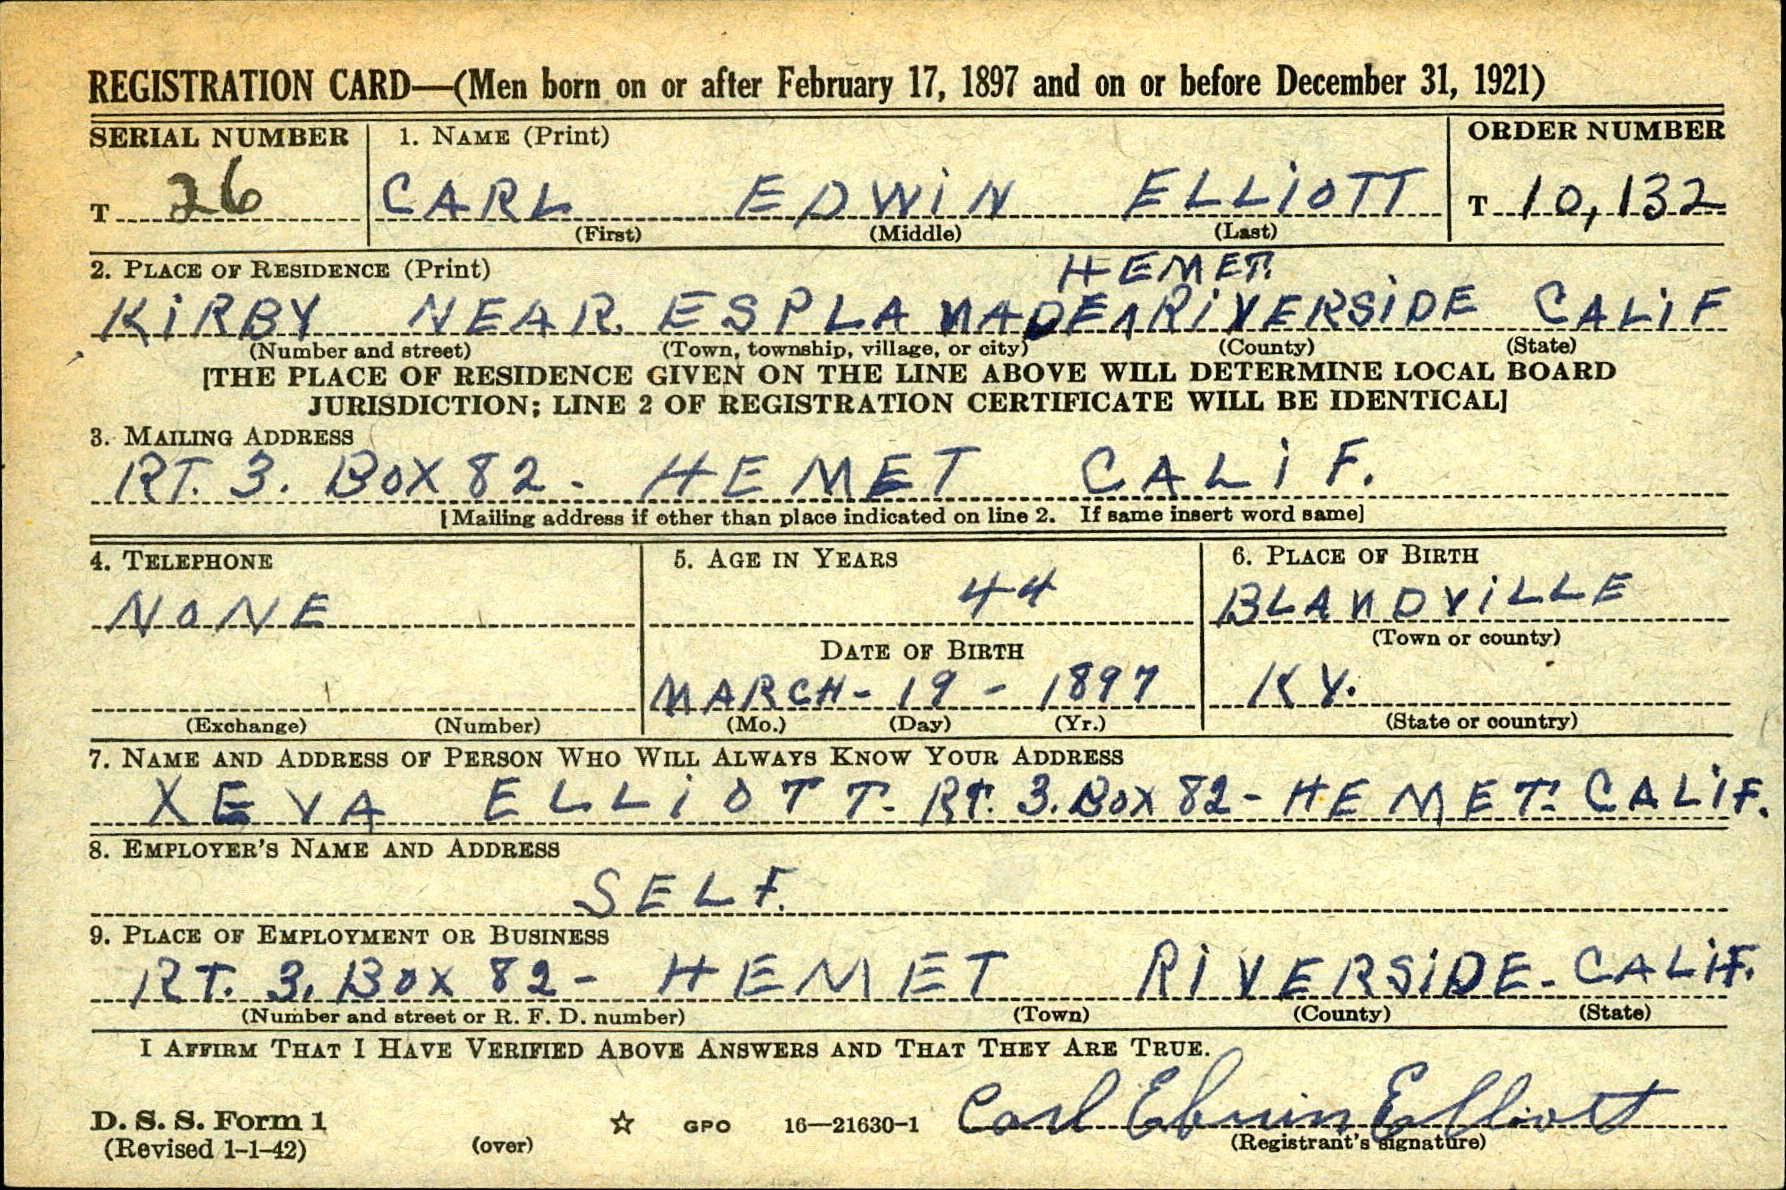 REGISTRATION CARD—(Men born on or after February 17, 1897 and on or before December 31, 1921)
SERIAL NUMBER 1. NAME (Print) ORDER NUMBER
T 26 CARL EDWIN ELLIOTT T 10,132
(First) (Middle) (Last)
2. PLACE OF RESIDENCE (Print) HEMET.
KIRBY NEAR ESPLANADE RIVERSIDE CALIF
(Number and street) (Town, township, village, or city) (County) (State)
[THE PLACE OF RESIDENCE GIVEN ON THE LINE ABOVE WILL DETERMINE LOCAL BOARD
JURISDICTION; LINE 2 OF REGISTRATION CERTIFICATE WILL BE IDENTICAL]
3. MAILING ADDRESS
RT. 3. BOX 82 - HEMET CALIF.
[Mailing address if other than place indicated on line 2. If same insert word same]
4. TELEPHONE 5. AGE IN YEARS 6. PLACE OF BIRTH
NONE 44 BLANDVILLE
(Town or county)
DATE OF BIRTH
MARCH - 19 - 1897 KY.
(Exchange) (Number) (Mo.) (Day) (Yr.) (State or country)
7. NAME AND ADDRESS OF PERSON WHO WILL ALWAYS KNOW YOUR ADDRESS
XEVA ELLIOTT - RT. 3. BOX 82 - HEMET. CALIF.
8. EMPLOYER'S NAME AND ADDRESS
SELF.
9. PLACE OF EMPLOYMENT OR BUSINESS
RT. 3. BOX 82 - HEMET RIVERSIDE - CALIF.
(Number and street or R. F. D. number) (Town) (County) (State)
I AFFIRM THAT I HAVE VERIFIED ABOVE ANSWERS AND THAT THEY ARE TRUE.
D. S. S. Form 1 GPO 16—21630-1 Carl Edwin Elliott
(Revised 1-1-42) (over) (Registrant's signature)